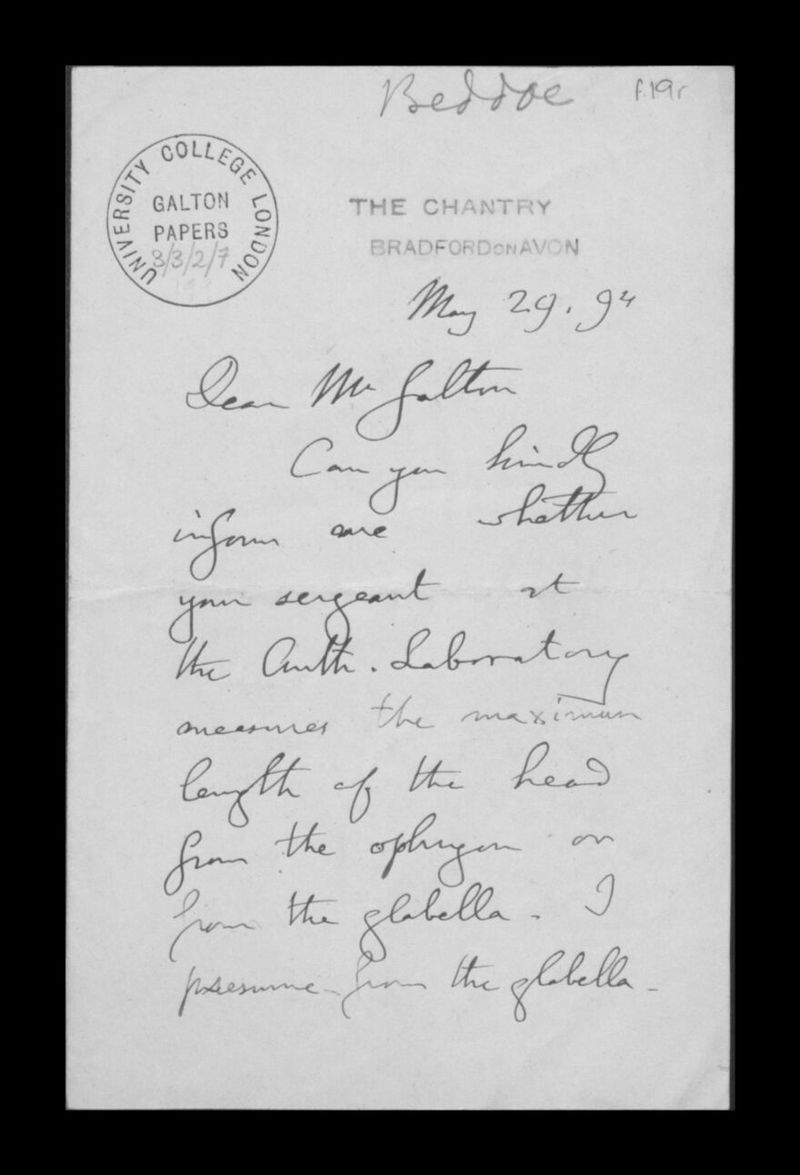 Beddoe
f.19r
UNIVERSITY COLLEGE LONDON
GALTON
PAPERS
3/3/2/7
THE CHANTRY
BRADFORD ON AVON
May 29. 94
Dear Mr Galton
Can you kindly
inform me whether
your sergeant at
the Anth. Laboratory
measures the maximum
length of the head
from the ophryon or
from the glabella. I
presume from the glabella.